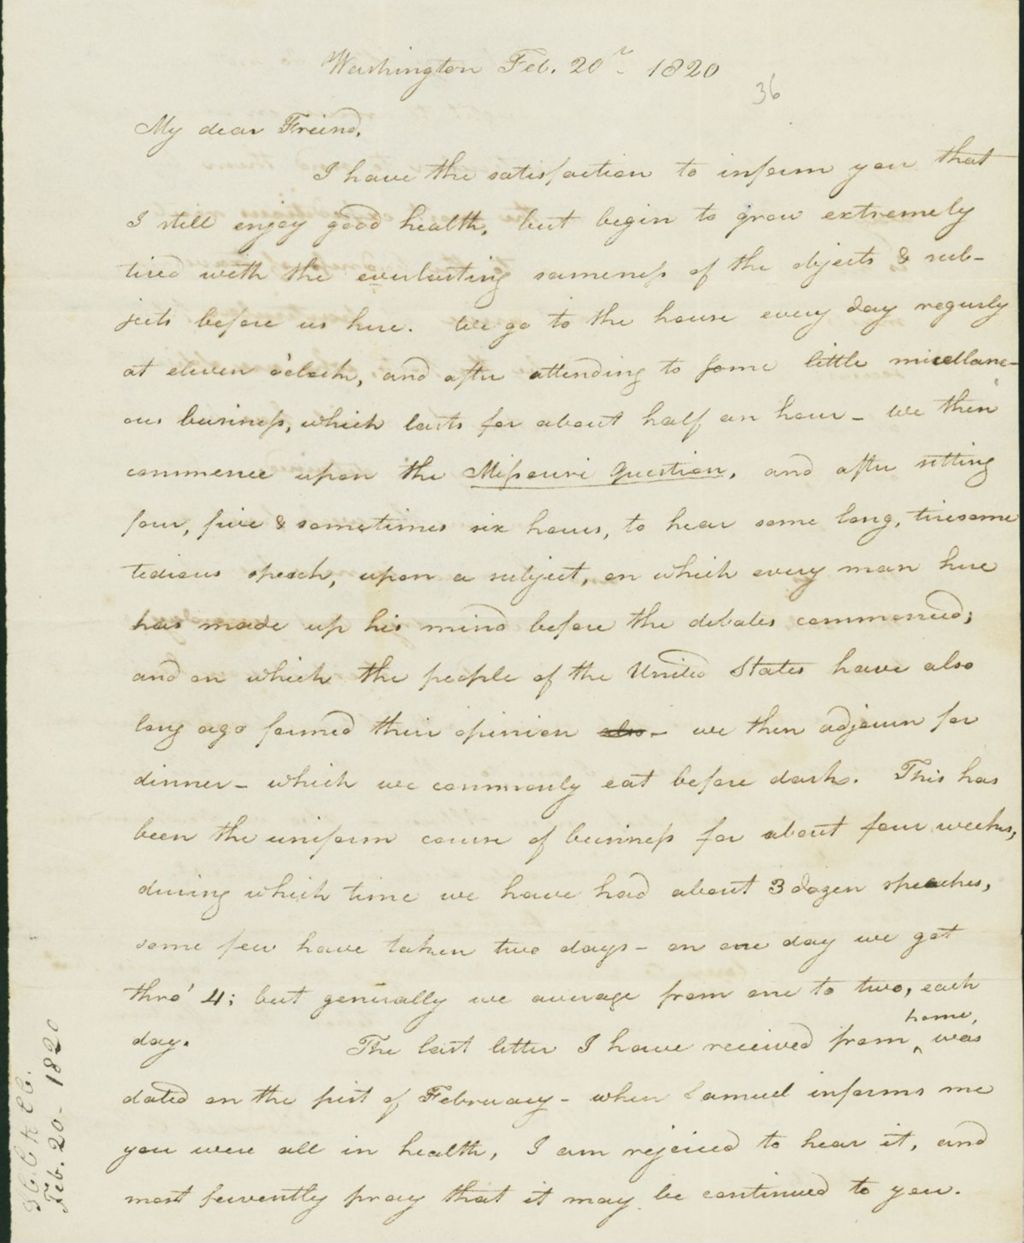 Washington Feb. 20th 1820
36
My dear Freind,
I have the satisfaction to inform you that
I still enjoy good health, but begin to grow extremely
tired with the everlasting sameness of the objects & sub-
jects before us here. We go to the house every day regurly
at eleven o'clock, and after attending to some little micellane-
ous business, which lasts for about half an hour - we then
commence upon the Missouri Question, and after sitting
four, five & sometimes six hours, to hear some long, tiresome
tedious speech, upon a subject, on which every man here
has made up his mind before the debates commenced;
and on which the people of the United States have also
long ago formed their opinion also - we then adjourn for
dinner - which we commonly eat before dark. This has
been the uniform course of business for about four weeks,
during which time we have had about 3 dozen speeches,
some few have taken two days - on one day we got
thro' 4; but generally we average from one to two, each
day. The last letter I have received from home, was
dated on the first of February - when Samuel informs me
you were all in health, I am rejoiced to hear it, and
most fervently pray that it may be continued to you.
Feb. 20 - 1820